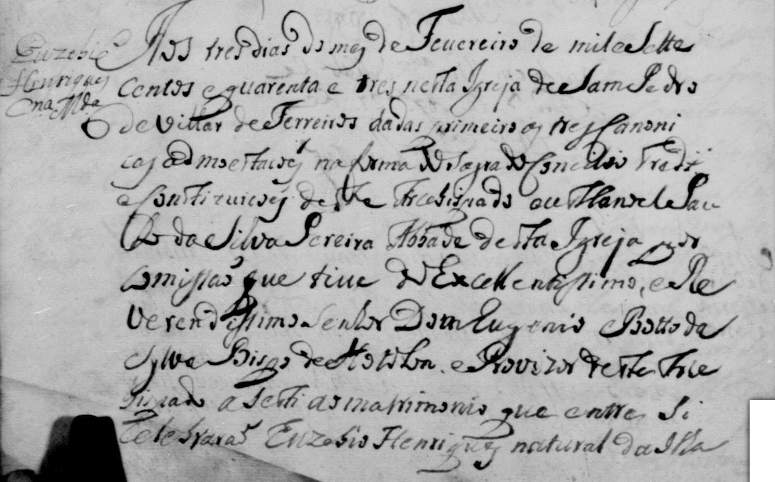 Euzebio
Henriques
na Ilda
Aos tres dias do mes de Fevereiro de mil e Sette
Centos e quarenta e tres nesta Igreja de Sam Pedro
de Villar de Ferreiros dadas primeiro as tres Canoni
cas admoestacoes na forma do Sagrado Concilio Tredt.
e Constituicoes deste Arcebispado eu Manoel Pau
lo da Silva Pereira Abbade desta Igreja por
Comissaõ que tive do Excellentissimo, e Re
verendissimo Senhor Dom Eugenio e Botto da
Sylva Bispo de e Provizor deste Arce
bispado asesti ao matrimonio que entre Si
Celebraraõ Euzebio Henriques natural da